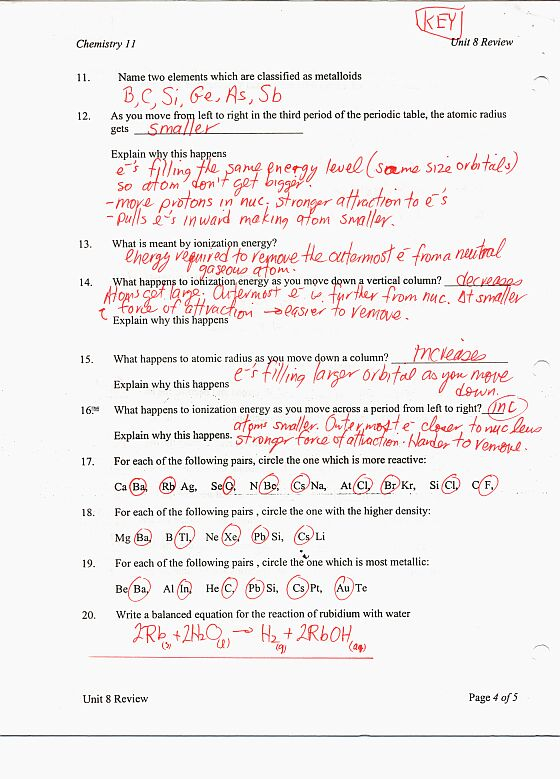 KEY
Chemistry 11
Unit 8 Review
11. Name two elements which are classified as metalloids
B, C, Si, Ge, As, Sb
12. As you move from left to right in the third period of the periodic table, the atomic radius
gets smaller
Explain why this happens
e⁻'s filling the same energy level (same size orbitals)
so atom don't get bigger.
- more protons in nuc; stronger attraction to e⁻'s
- pulls e⁻'s inward making atom smaller.
13. What is meant by ionization energy?
energy required to remove the outermost e⁻ from a neutral
gaseous atom.
14. What happens to ionization energy as you move down a vertical column? decreases
Atoms get large. Outermost e⁻ is further from nuc. smaller
force of attraction → easier to remove.
Explain why this happens
15. What happens to atomic radius as you move down a column? increases
Explain why this happens e⁻'s filling larger orbital as you move
down.
16. What happens to ionization energy as you move across a period from left to right? inc
atoms smaller. Outermost e⁻ closer to nucleus
Explain why this happens. stronger force of attraction. Harder to remove.
17. For each of the following pairs, circle the one which is more reactive:
Ca Ba, Rb Ag, Se O, N Be, Cs Na, At Cl, Br Kr, Si Cl, C F,
18. For each of the following pairs , circle the one with the higher density:
Mg Ba, B Tl, Ne Xe, Pb Si, Cs Li
19. For each of the following pairs , circle the one which is most metallic:
Be Ba, Al In, He C, Pb Si, Cs Pt, Au Te
20. Write a balanced equation for the reaction of rubidium with water
2Rb(s) + 2H₂O(l) → H₂(g) + 2RbOH(aq)
Unit 8 Review
Page 4 of 5